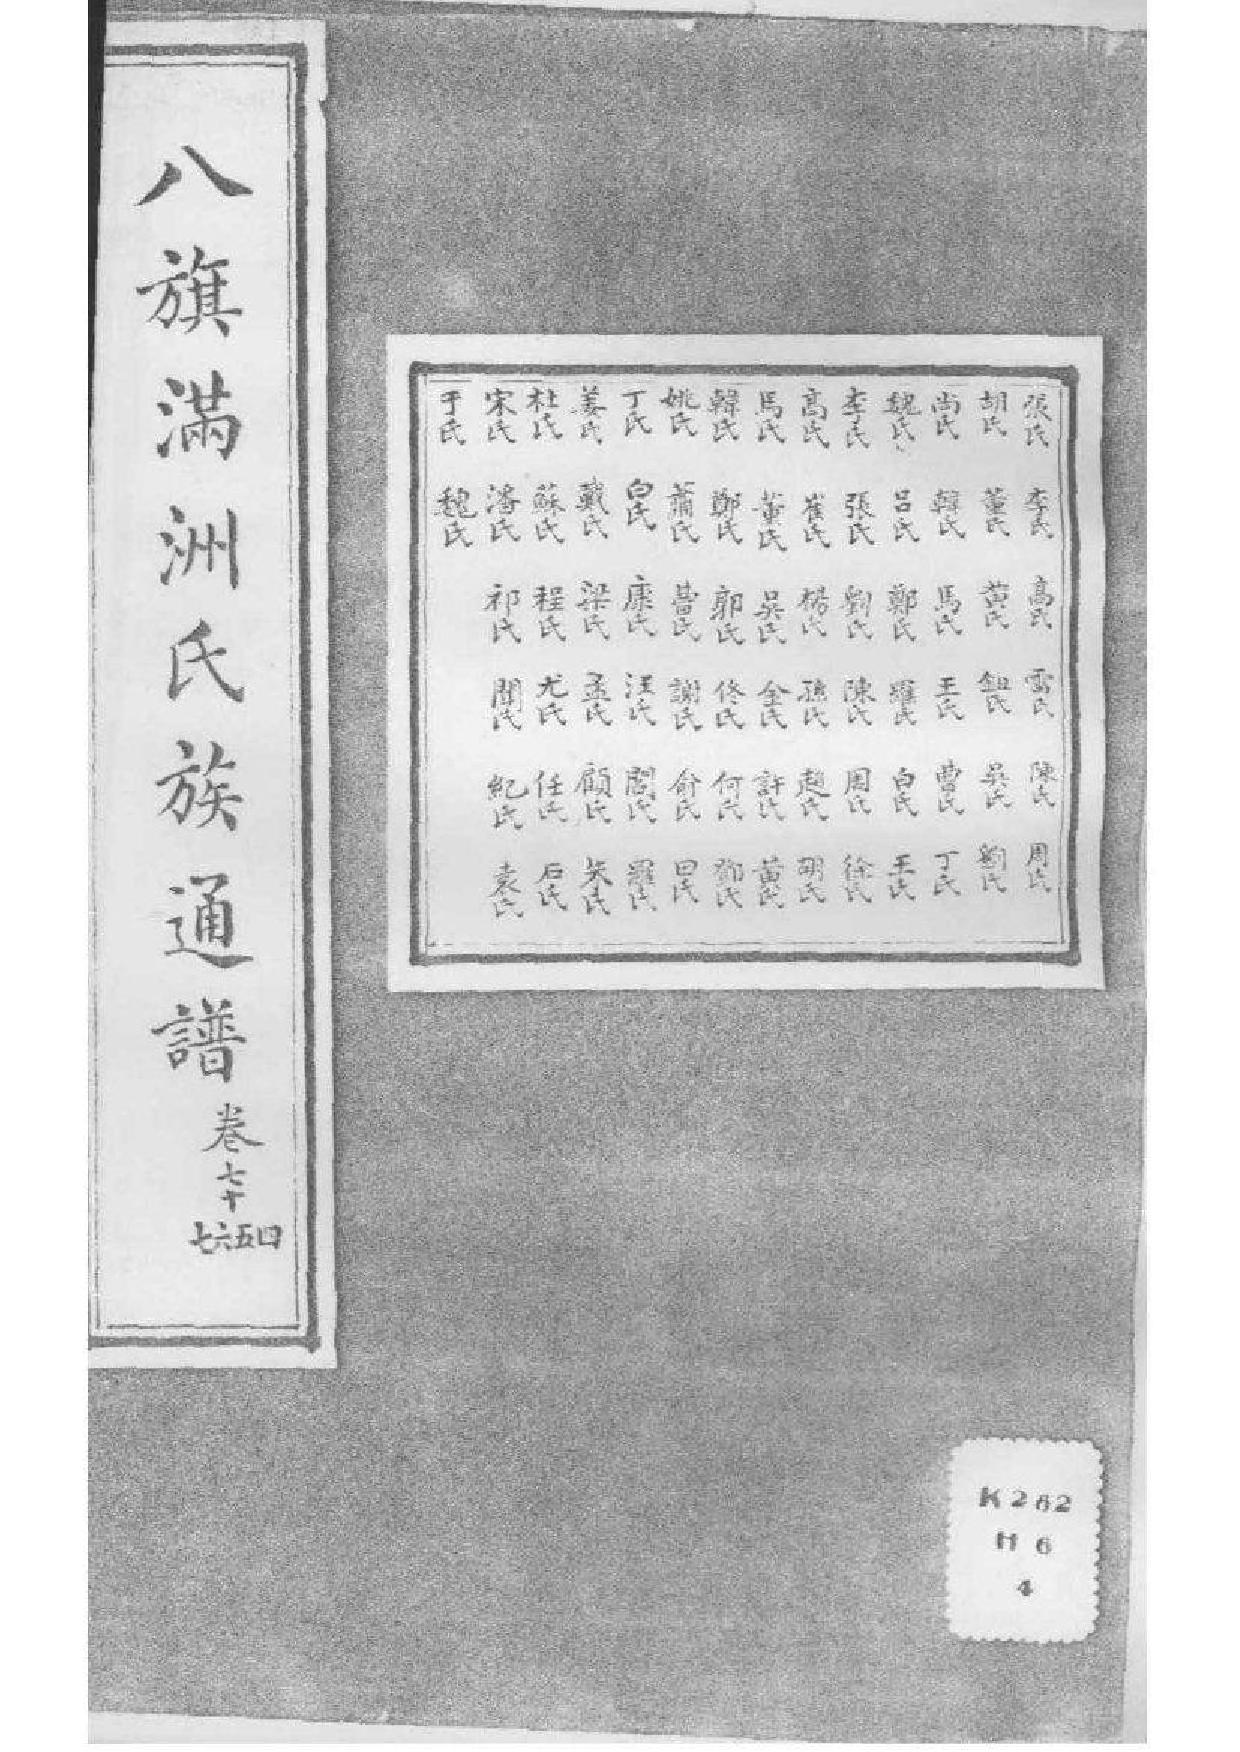 張氏 李氏 高氏 雷氏 陳氏 周氏
胡氏 董氏 黃氏 鈕氏 吳氏 劉氏
尚氏 韓氏 馬氏 王氏 曹氏 丁氏
魏氏 呂氏 鄭氏 羅氏 白氏 王氏
李氏 張氏 劉氏 陳氏 周氏 徐氏
高氏 崔氏 楊氏 孫氏 趙氏 胡氏
馬氏 董氏 吳氏 金氏 許氏 黃氏
韓氏 鄭氏 郭氏 佟氏 何氏 鄧氏
姚氏 蕭氏 曹氏 謝氏 俞氏 田氏
丁氏 白氏 康氏 汪氏 閻氏 羅氏
姜氏 戴氏 梁氏 孟氏 顧氏 氏
杜氏 蘇氏 程氏 尤氏 任氏 石氏
宋氏 潘氏 祁氏 聞氏 紀氏 袁氏
于氏 魏氏
八旗滿洲氏族通譜 卷七十四五六七
K262
H6
4